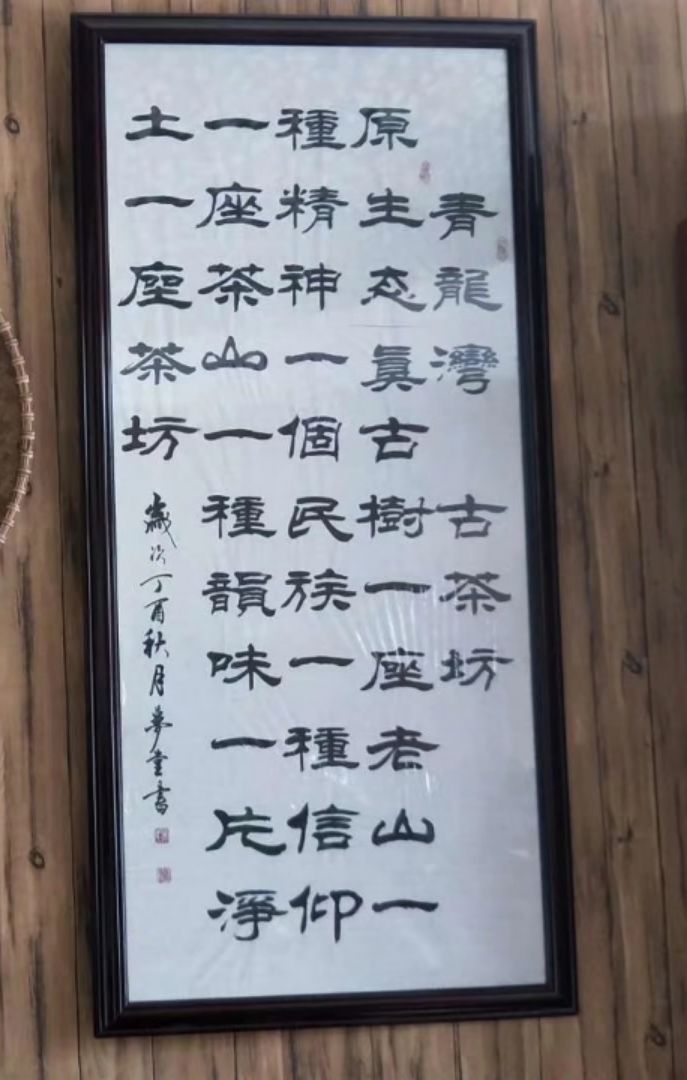 青龍灣 古茶坊
原生态真古樹一座老山一
種精神一個民族一種信仰
一座茶山一種韻味一片淨
土一座茶坊
歲次丁酉秋月夢堂書